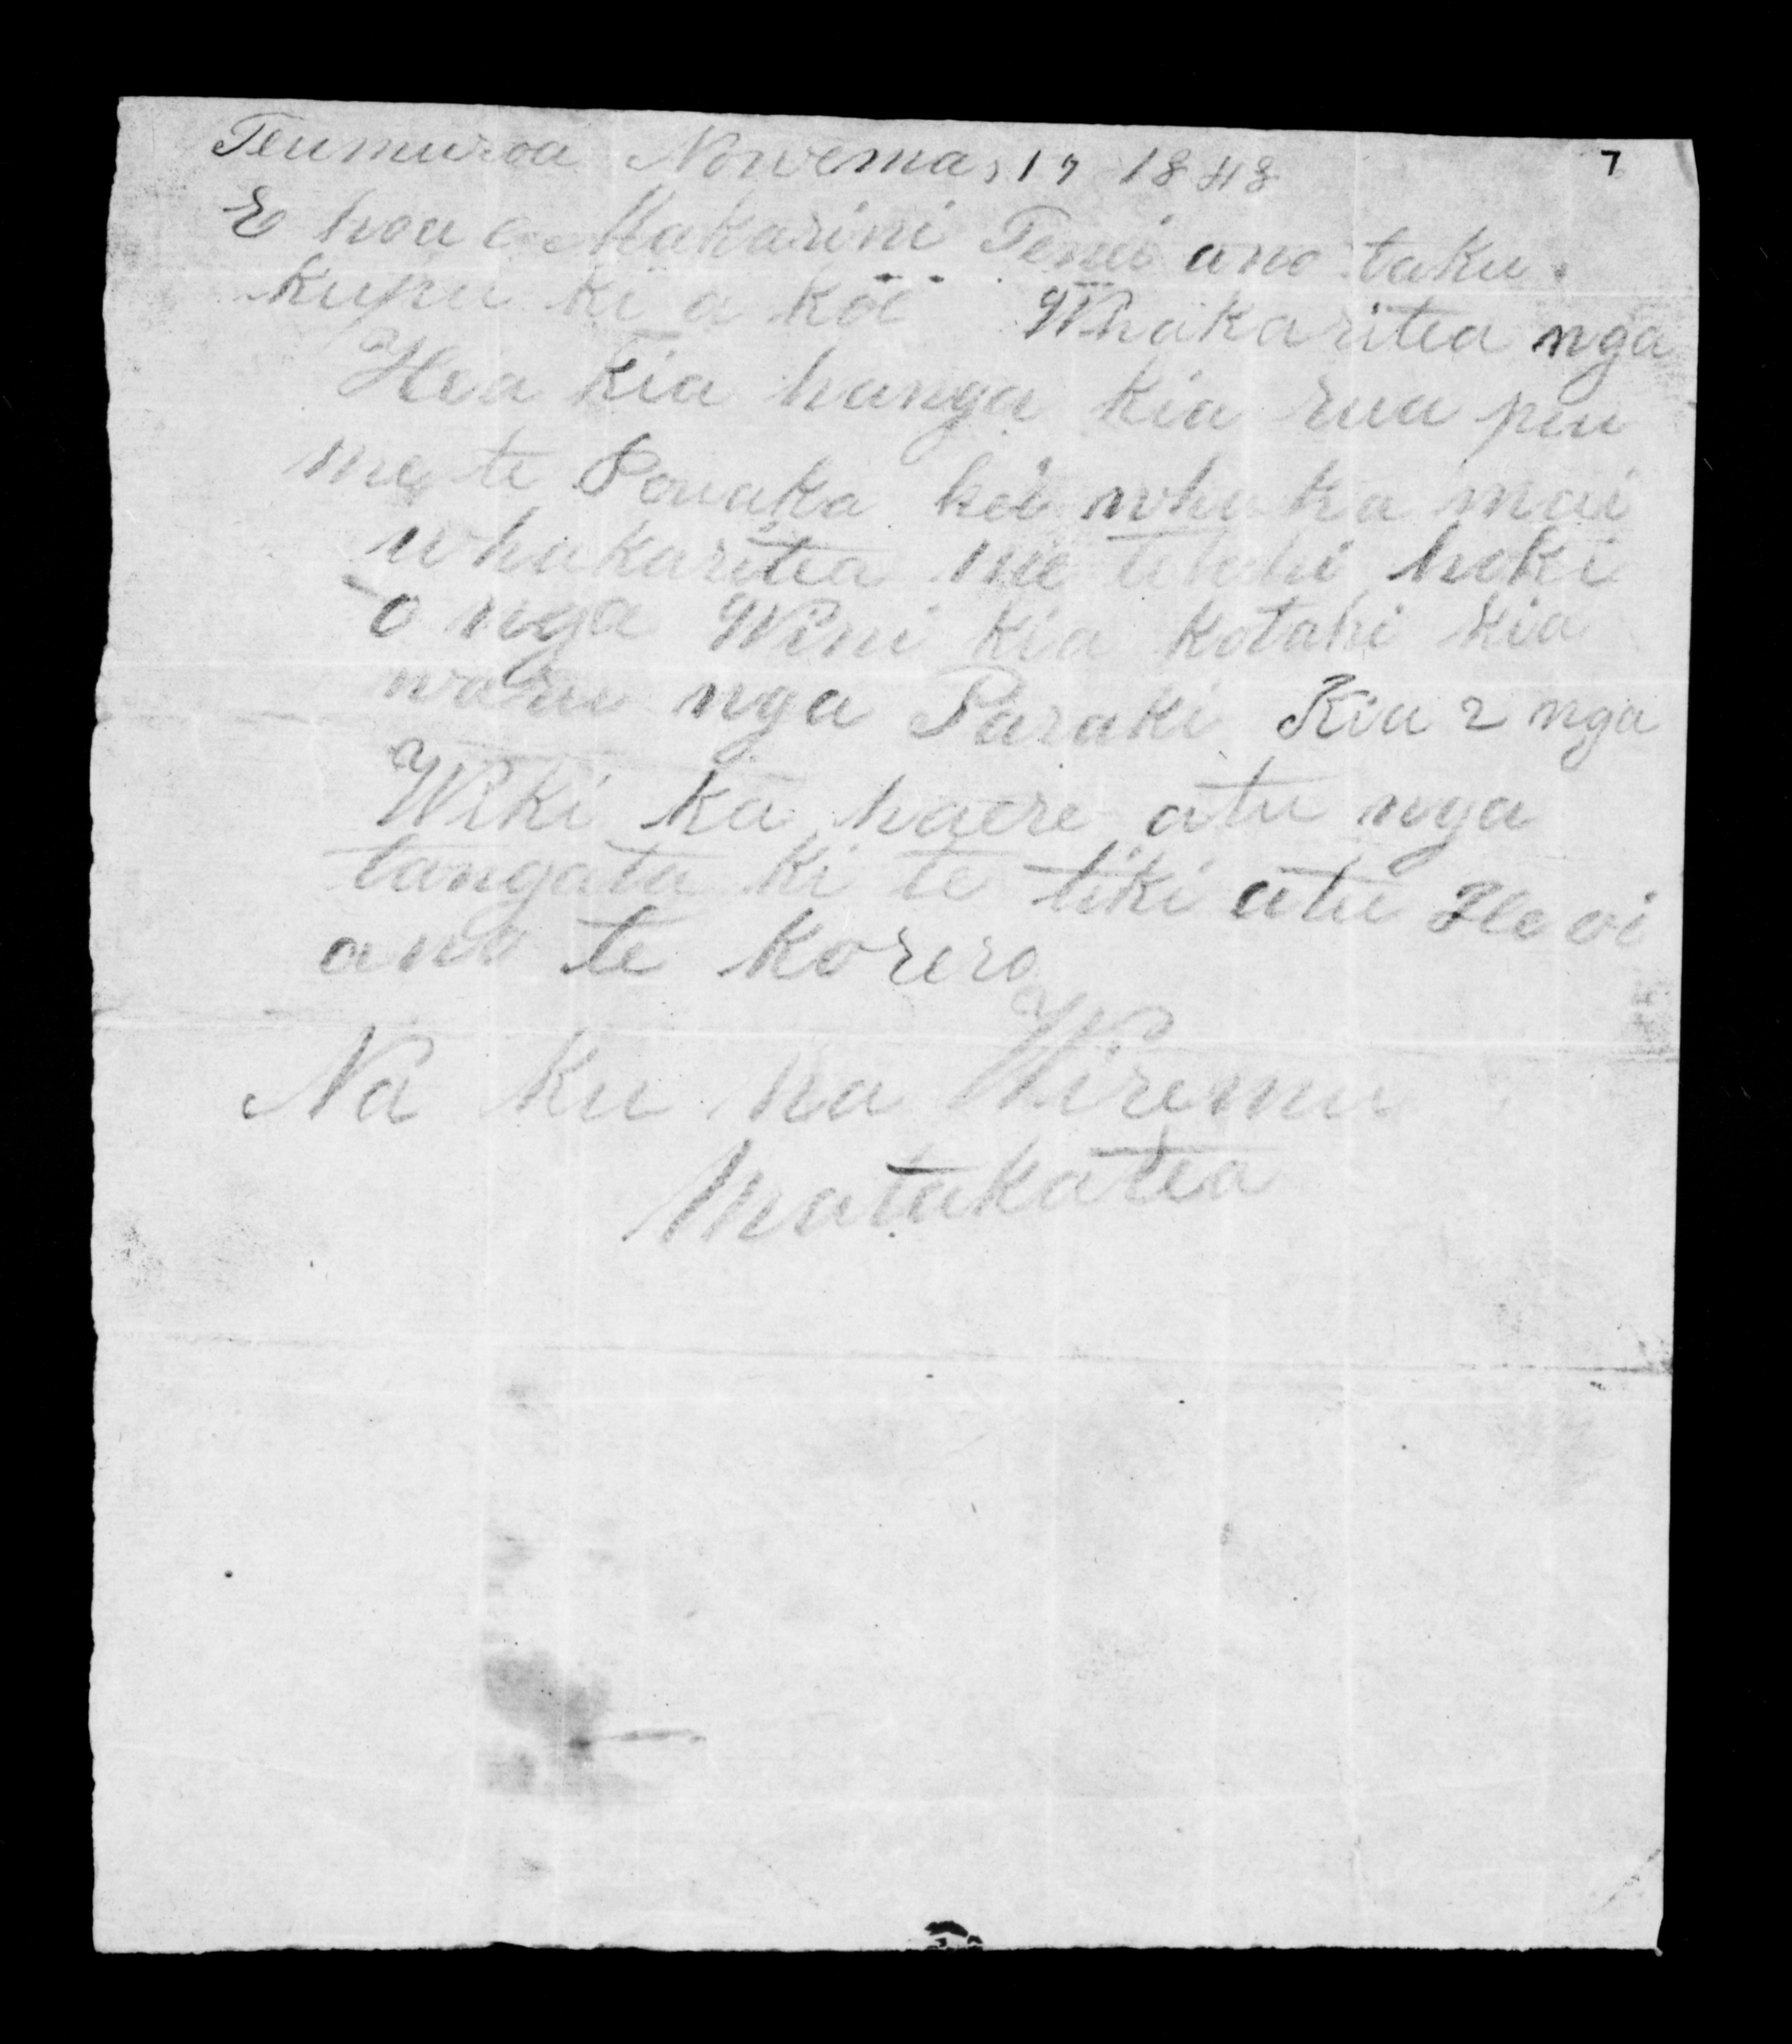 Teumuroa Nowema, 17 1848
7
E hoa e Makarini Tenei ano taku
kupu ki a koe Whakaritea nga
Hea kia hanga kia rua pea
me te Pouaka hei whaka mai
whakaritea me tehehi hoki
o nga Wini kia kotahi kia
waru nga Paraki Kia 2 nga
Wiki ka haere atu nga
tangata ki te tiki atu Heoi
ano te korero
Na ku na Wiremu
Matakatea